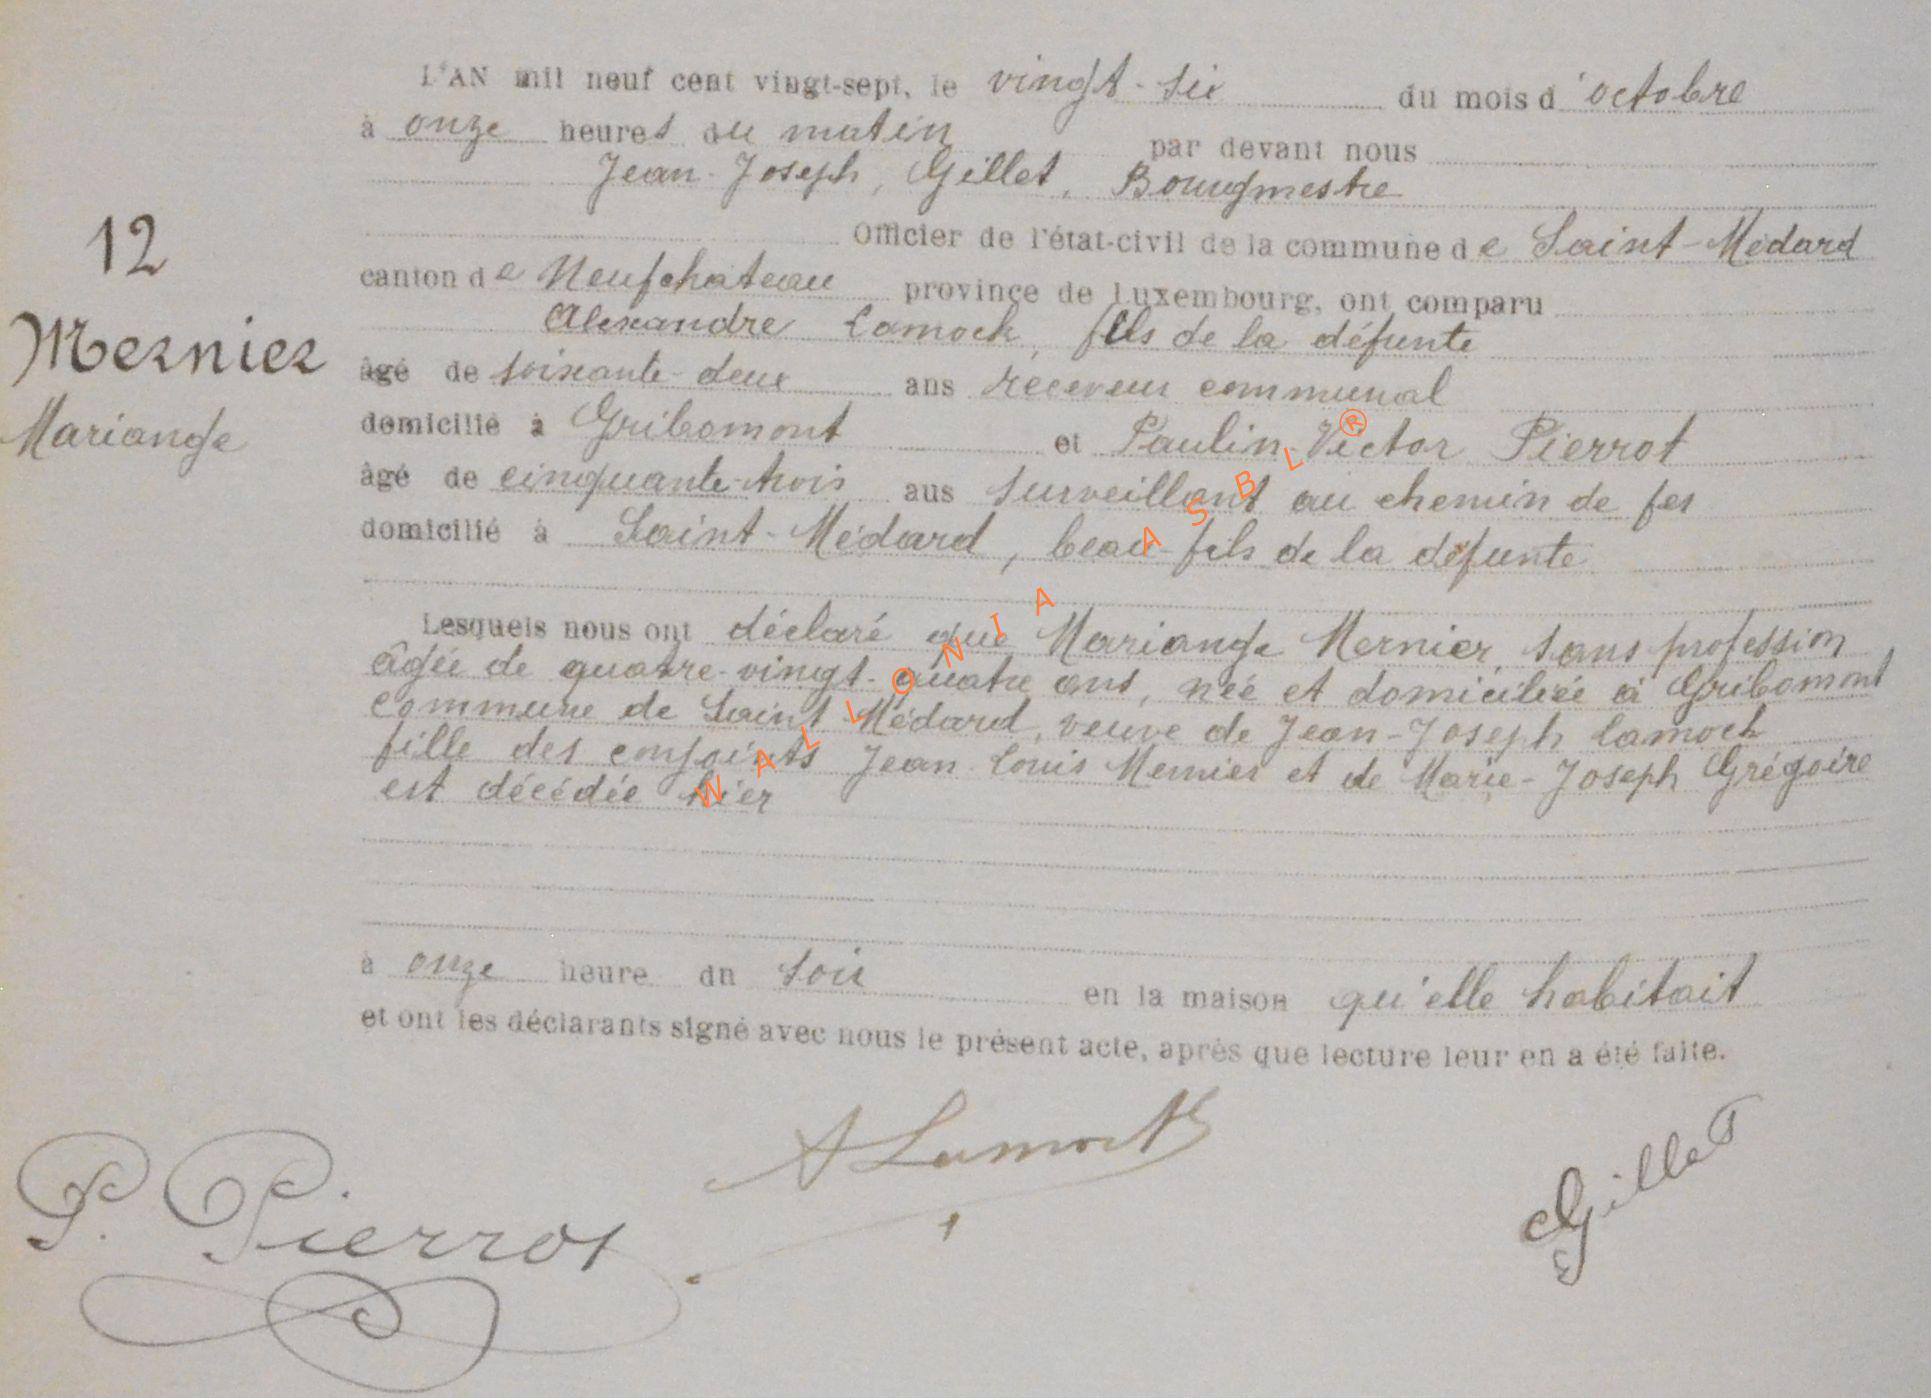 L'AN mil neuf cent vingt-sept, le vingt-six du mois d'octobre
à onze heures du matin par devant nous
Jean-Joseph, Gillet, Bourgmestre
Officier de l'état-civil de la commune de Saint-Médard
canton de Neufchateau province de Luxembourg, ont comparu
Alexandre Lamock, fils de la défunte
âgé de soixante-deux ans receveur communal
domicilié à Gribomont et Paulin-Victor Pierrot
âgé de cinquante-trois ans surveillant au chemin de fer
domicilié à Saint-Médard, beau-fils de la défunte
12
Mernier
Mariange
Lesquels nous ont déclaré que Mariange Mernier, sans profession
âgée de quatre-vingt-quatre ans, née et domiciliée à Gribomont
commune de Saint Médard, veuve de Jean-Joseph Lamock
fille des conjoints Jean-Louis Mernier et de Marie-Joseph Grégoire
est décédée hier
à onze heure du soir en la maison qu'elle habitait
et ont les déclarants signé avec nous le présent acte, après que lecture leur en a été faite.
P. Pierrot
A Lamock
Gillet
WALLONIA ASBL ®